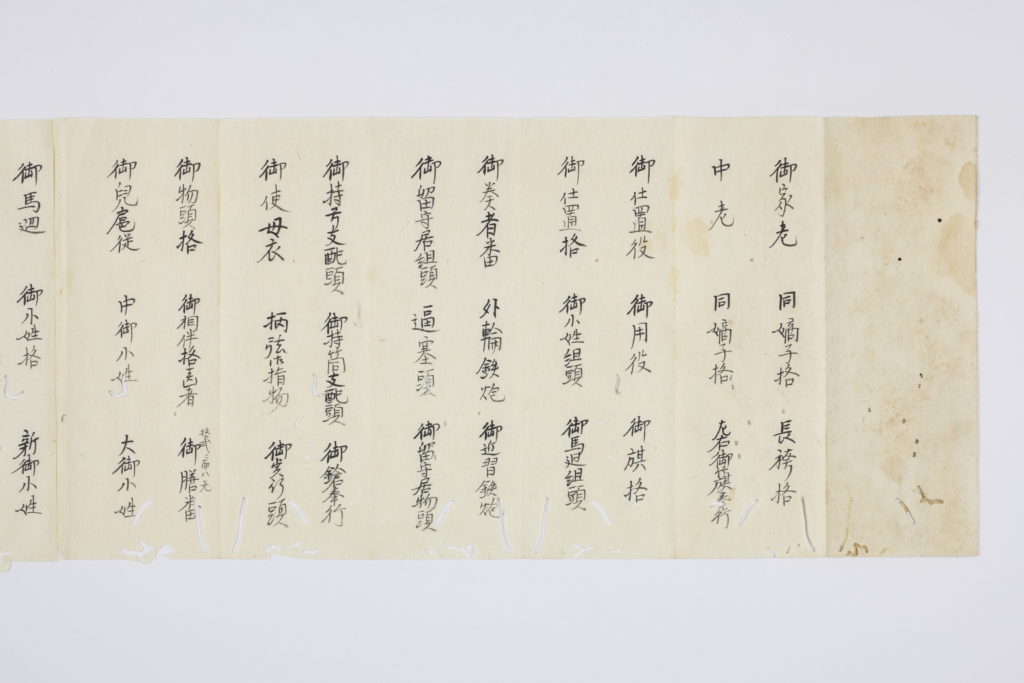 御家老 同嫡子格 長袴格
中老 同嫡子格 左右御旗奉行
御仕置役 御用役 御旗格
御仕置格 御小姓組頭 御馬廻組頭
御奏者番 外輪鉄炮 御近習鉄炮
御留守居組頭 逼塞頭 御留守居物頭
御持弓支配頭 御持筒支配頭 御鎗奉行
御使母衣 柄弦指物 御歩行頭
御物頭格 御相伴格医者 御膳番
御兒扈従 中御小姓 大御小姓
御馬廻 御小姓格 新御小姓